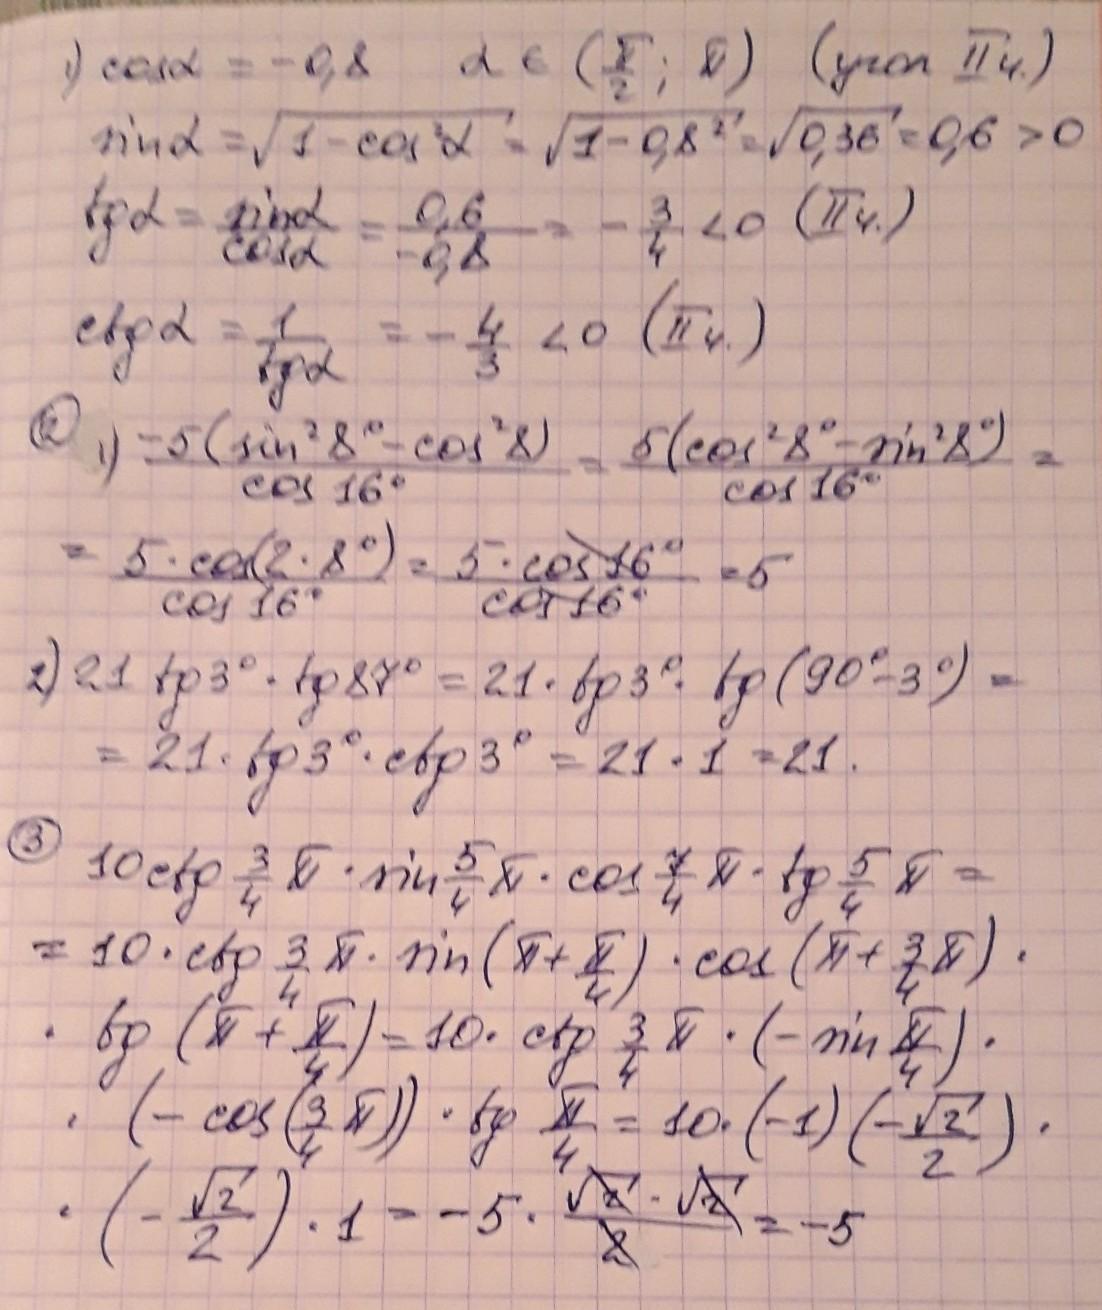 1) cosα = -0,8 α ∈ (π/2; π) (угол IIч.)
sinα = √(1-cos²α) = √(1-0,8²) = √0,36 = 0,6 > 0
tgα = sinα/cosα = 0,6/-0,8 = -3/4 < 0 (IIч.)
ctgα = 1/tgα = -4/3 < 0 (IIч.)
② 1) -5(sin²8°-cos²8)/cos 16° = 5(cos²8°-sin²8°)/cos 16° =
= 5·cos(2·8°)/cos 16° = 5·cos 16°/cos 16° = 5
2) 21 tg3°·tg87° = 21·tg3°·tg(90°-3°) =
= 21·tg3°·ctg3° = 21·1 = 21.
③
10ctg 3/4 π · sin 5/4 π · cos 7/4 π · tg 5/4 π =
= 10·ctg 3/4 π · sin(π+π/4) · cos(π+3/4 π) ·
· tg (π+π/4) = 10· ctg 3/4 π · (-sin π/4) ·
· (-cos(3/4 π)) · tg π/4 = 10·(-1)(-√2/2) ·
· (-√2/2) · 1 = -5 · √2·√2/2 = -5